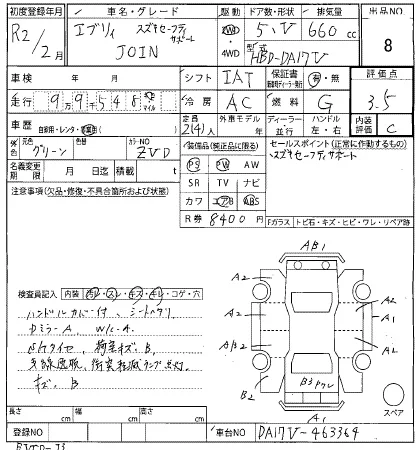 初度登録年月 車名・グレード 駆動 ドア数・形状 排気量 出品NO
R2/2月 エブリィ スズキセーフティサポート JOIN 2WD・4WD 5・V 660cc 8
型式 HBD-DA17V
車検 年 月 シフト IAT 保証書 有・無 評価点
走行 99548 マイル 冷房 AC 燃料 G 3.5
車歴 自家用・レンタ・事業用 定員 2(4)人 外車モデル 年 ディーラー 並行 ハンドル 左・右 内装評価 C
外色 元色 グリーン 色替 カラーNO ZVD 装備品(純正品に限る) セールスポイント(正常に作動するもの)
名義変更期限 月 日迄 積載 t PS PW AW スズキセーフティサポート
注意事項(欠品・修復・不具合箇所および状態) SR TV ナビ
カワ エアB ABS
R券 8400円 Fガラス トビ石・キズ・ヒビ・ワレ・リペア跡
AB1
A2 A2
検査員記入 内装 ・コゲ・穴
A2 A1
ハンドルカバー付、シート
ミラーA、W/C-A
AB2 A2
キズB
ランプ点灯
キズB
B2 B3 ワレ
A1 スペア
長さ cm 幅 cm 高さ cm
登録NO 車台NO DA17V-463364